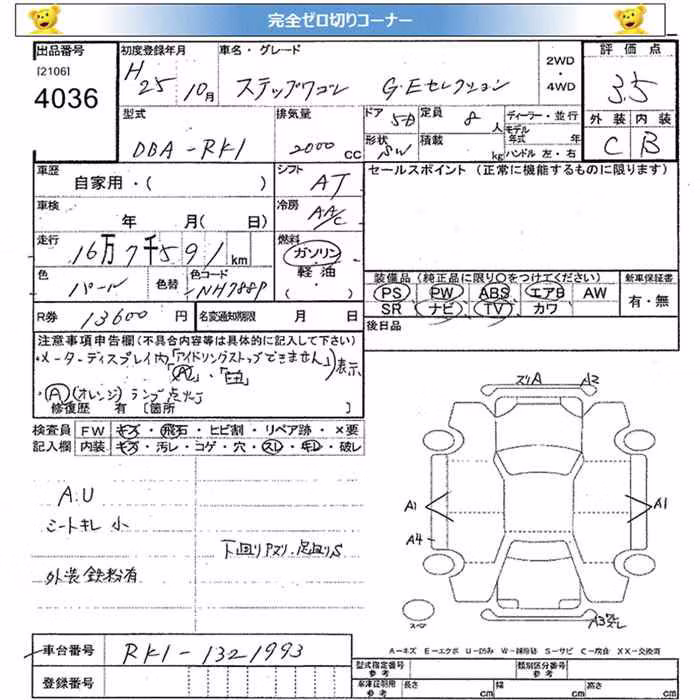 完全ゼロ切りコーナー
出品番号 初度登録年月 車名・グレード 2WD ・ 4WD 評価点
[2106]
4036
H25 10月 ステップワゴン G・Eセレクション 3.5
型式 排気量 ドア 5D 定員 8人 ディーラー・並行 外装 内装
DBA-RK1 2000 CC 形状 SW 積載 kg モデル年式 年 ハンドル 左・右 C B
車歴 シフト セールスポイント (正常に機能するものに限ります)
自家用・( ) AT
車検 年 月( 日) 冷房 AAC
走行 16万7千591 km 燃料 ガソリン
軽油
( ・ )
色 パール 色替 色コード NH788P
装備品 (純正品に限り○をつけてください) 新車保証書
PS PW ABS エアB AW 有・無
SR ナビ TV カワ
R券 13600 円 名変通知期限 月 日 後日品
注意事項申告欄(不具合内容等は具体的に記入して下さい)
・メーターディスプレイ内「アイドリングストップできません」表示
・(A)(オレンジ)ランプ点灯
修復歴 有 [箇所 ]
検査員 FW キズ・飛石・ヒビ割・リペア跡・×要
記入欄 内装 キズ・汚レ・コゲ・穴・スレ・キレ・破レ
A.U
シートキレ 小
下回りサビ・足回りS
外装鉄粉有
スリA A2
A1 A1
A4
スペア A3 スレ
A-キズ E-エクボ U-凹み W-補修跡 S-サビ C-腐食 XX-交換済
車台番号 RK1-1321993
登録番号
型式指定番号 参考 類別区分番号 参考
車庫証明用 参考 長さ cm 幅 cm 高さ cm